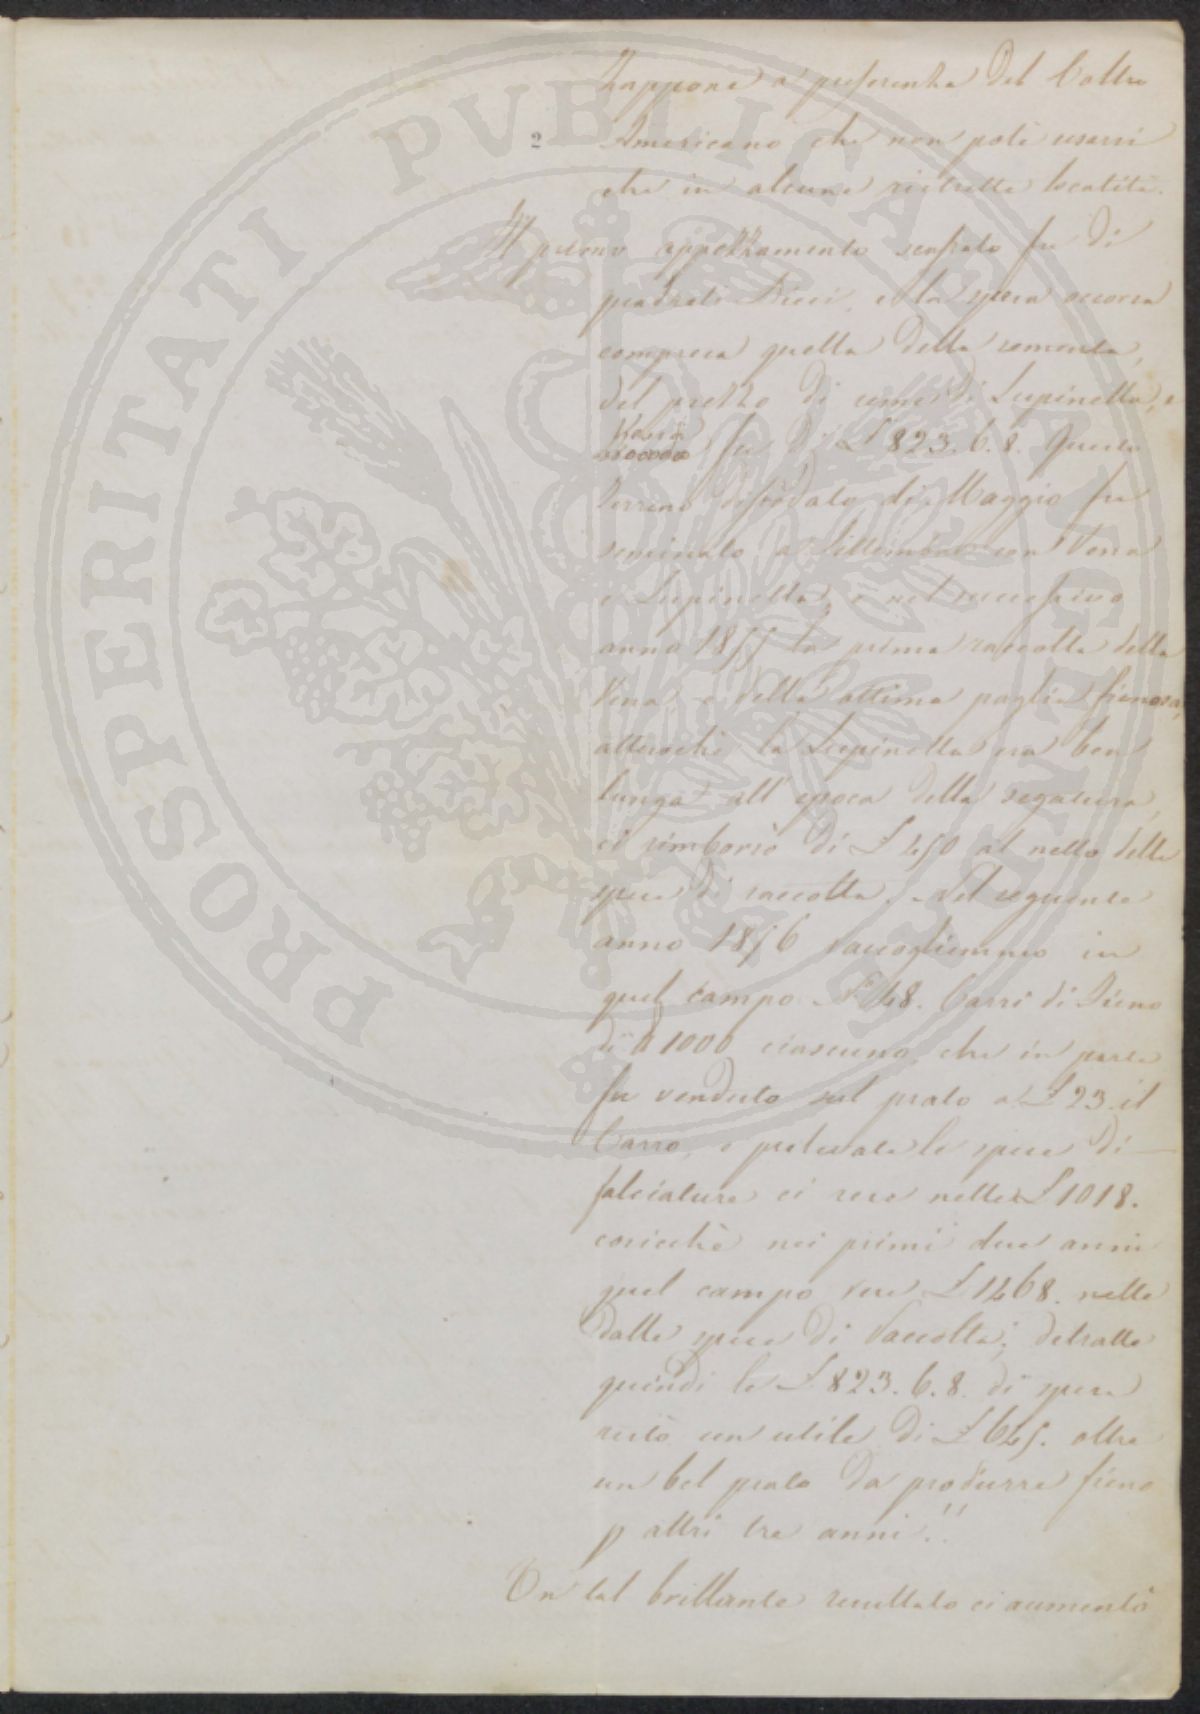 Zappone a preferenza del Coltro
2
Americano che non potè usarsi
che in alcune ristrette località.
Il primo appezzamento scassato fu di
quadrati Dieci, e la spesa occorsa
compresa quella della sementa,
del prezzo di seme di Lupinella, e
Vena fu di £ 823. 6. 8. Questo
terreno dissodato di Maggio fu
seminato a Settembre con Vena
e Lupinella, e nel successivo
anno 1855 la prima raccolta della
Vena e della ottima paglia fienosa,
attesochè la Lupinella era ben
lunga all'epoca della segatura,
ci rimborsò di £ 450 al netto delle
spese di raccolta. Nel seguente
anno 1856 raccogliemmo in
quel campo N° 48. Carri di Fieno
di lb 1000 ciascuno, che in parte
fu venduto sul prato a £ 23 il
Carro, e prelevate le spese di
falciature ci rese nette £ 1018.
cosicchè nei primi due anni
quel campo rese £ 1468. nette
dalle spese di raccolta; detratte
quindi le £ 823. 6. 8. di spesa
restò un utile di £ 645. oltre
un bel prato da produrre fieno
p altri tre anni!!
Un tal brillante resultato ci aumentò
PROSPERITATI PUBLICAE AUGENDAE